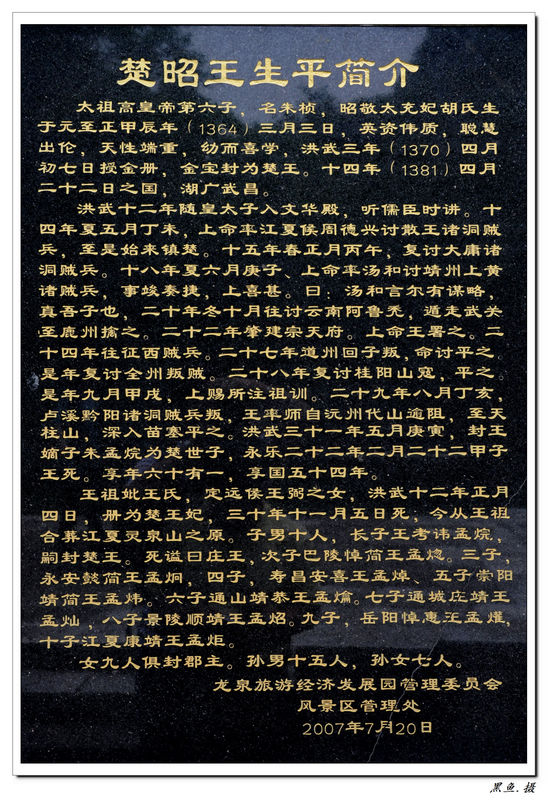 楚昭王生平简介
太祖高皇帝第六子，名朱桢，昭敬太充妃胡氏生
于元至正甲辰年（1364）三月三日，英资伟质，聪慧
出伦，天性端重，幼而喜学，洪武三年（1370）四月
初七日授金册，金宝封为楚王。十四年（1381）四月
二十二日之国，湖广武昌。
洪武十二年随皇太子入文华殿，听儒臣时讲。十
四年夏五月丁未，上命率江夏侯周德兴讨散王诸洞贼
兵，至是始来镇楚。十五年春正月丙午，复讨大庸诸
洞贼兵。十八年夏六月庚子、上命率汤和讨靖州上黄
诸贼兵，事竣奏捷，上喜甚。曰：汤和言尔有谋略，
真吾子也，二十年冬十月往讨云南阿鲁秃，遁走武关
至鹿州擒之。二十二年肇建宗天府。上命王署之。二
十四年往征西贼兵。二十七年道州回子叛，命讨平之。
是年复讨全州叛贼。二十八年复讨桂阳山寇，平之。
是年九月甲戌，上赐所注祖训。二十九年八月丁亥，
卢溪黔阳诸洞贼兵叛，王率师自沅州伐山逾阻，至天
柱山，深入苗塞平之。洪武三十一年五月庚寅，封王
嫡子朱孟烷为楚世子，永乐二十二年二月二十二甲子
王死。享年六十有一，享国五十四年。
王祖妣王氏，定远侯王弼之女，洪武十二年正月
四日，册为楚王妃，三十年十一月五日死；今从王祖
合葬江夏灵泉山之原。子男十人，长子王考讳孟烷，
嗣封楚王。死谥曰庄王，次子巴陵悼简王孟熜。三子，
永安懿简王孟炯，四子，寿昌安喜王孟焯、五子崇阳
靖简王孟炜。六子通山靖恭王孟爚。七子通城庄靖王
孟灿，八子景陵顺靖王孟炤。九子，岳阳悼惠王孟爟，
十子江夏康靖王孟炬。
女九人俱封郡主。孙男十五人，孙女七人。
龙泉旅游经济发展园管理委员会
风景区管理处
2007年7月20日
黑鱼.摄